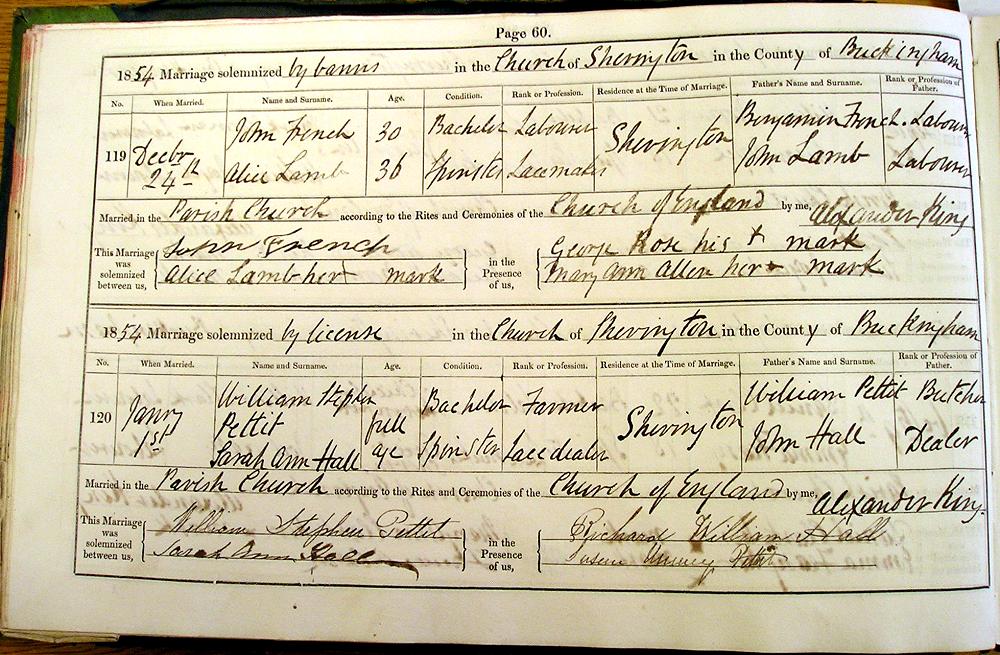 Page 60.
1854 Marriage solemnized by banns in the Church of Sherington in the County of Buckingham
No. When Married. Name and Surname. Age. Condition. Rank or Profession. Residence at the Time of Marriage. Father's Name and Surname. Rank or Profession of Father.
John French 30 Bachelor Labourer Benjamin French. Labourer
119 Decbr Sherington
24th Alice Lamb 36 Spinster Lacemaker John Lamb Labourer
Married in the Parish Church according to the Rites and Ceremonies of the Church of England by me, Alexander King
This Marriage was solemnized between us, John French in the Presence of us, George Rose his X mark
Alice Lamb her + mark Mary Ann Allen her + mark
1854 Marriage solemnized by license in the Church of Sherington in the County of Buckingham
No. When Married. Name and Surname. Age. Condition. Rank or Profession. Residence at the Time of Marriage. Father's Name and Surname. Rank or Profession of Father.
William Stephen Bachelor Farmer William Pettit Butcher
120 Jany Pettit full Sherington
1st Sarah Ann Hall age Spinster Lacedealer John Hall Dealer
Married in the Parish Church according to the Rites and Ceremonies of the Church of England by me, Alexander King
This Marriage was solemnized between us, William Stephen Pettit in the Presence of us, Richard William Hall
Sarah Ann Hall Pettit